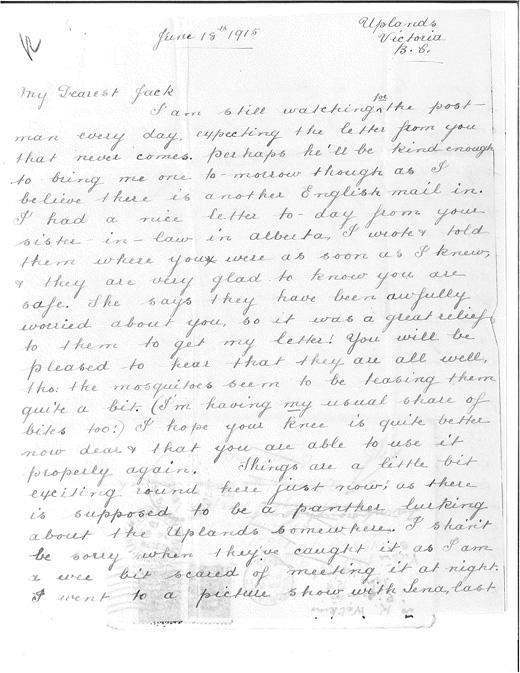 June 18th 1915
Uplands
Victoria
B.C.
My Dearest Jack
I am still watching for the post-
man every day, expecting the letter from you
that never comes. Perhaps he'll be kind enough
to bring me one to-morrow though as I
believe there is another English mail in.
I had a nice letter to-day from your
sister-in-law in Alberta, I wrote & told
them where you were as soon as I knew,
& they are very glad to know you are
safe. She says they have been awfully
worried about you, so it was a great relief
to them to get my letter! You will be
pleased to hear that they are all well,
tho: the mosquitoes seem to be teasing them
quite a bit. (I'm having my usual share of
bites too!) I hope your knee is quite better
now dear & that you are able to use it
properly again. Things are a little bit
exciting round here just now; as there
is supposed to be a panther lurking
about the Uplands somewhere. I shan't
be sorry when they've caught it as I am
a wee bit scared of meeting it at night.
I went to a picture show with Lena, last